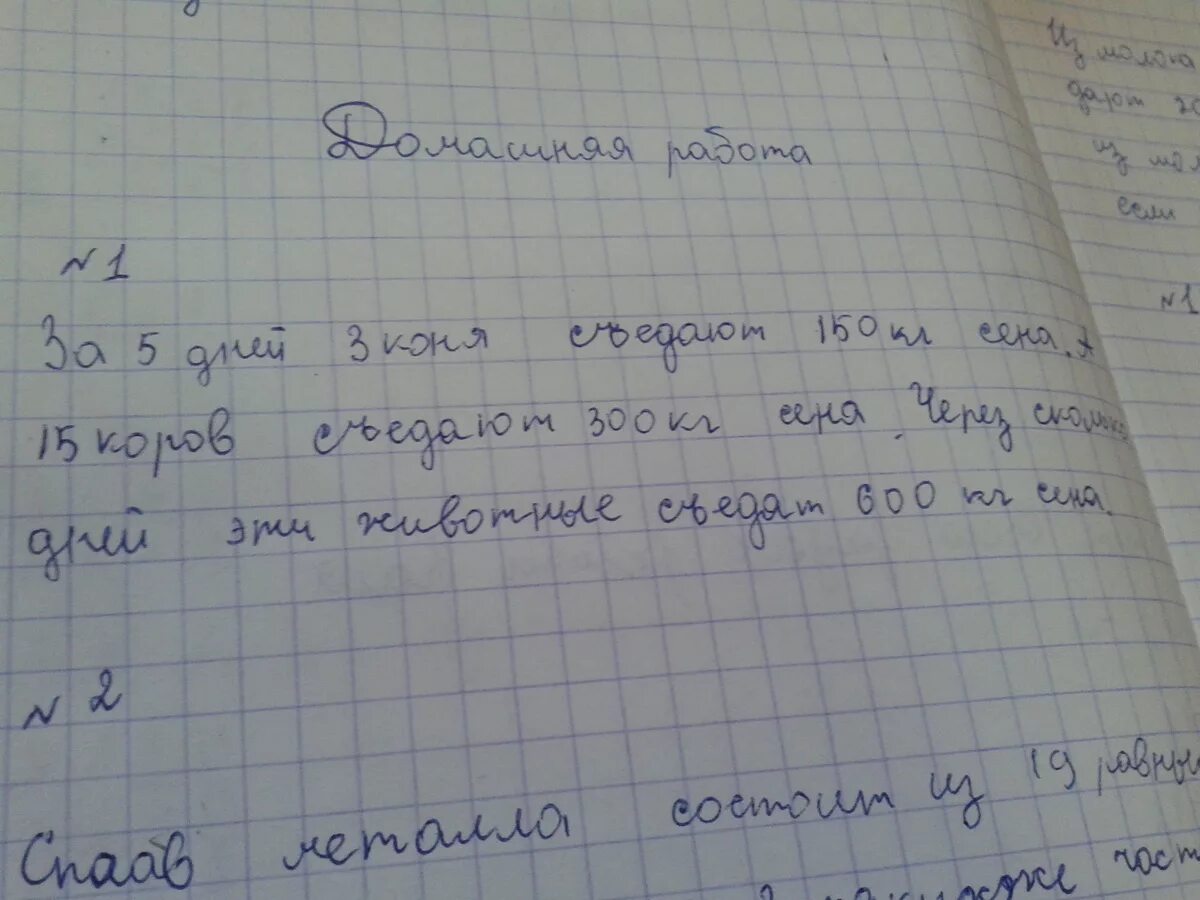 Домашняя работа
№1
За 5 дней 3 коня съедают 150 кг сена. А
15 коров съедают 300 кг сена. Через сколько
дней эти животные съедат 600 кг сена.
№2
Спаав металла состоит из 19 равных
част
Из молока
дают 20
из мол
если
№1